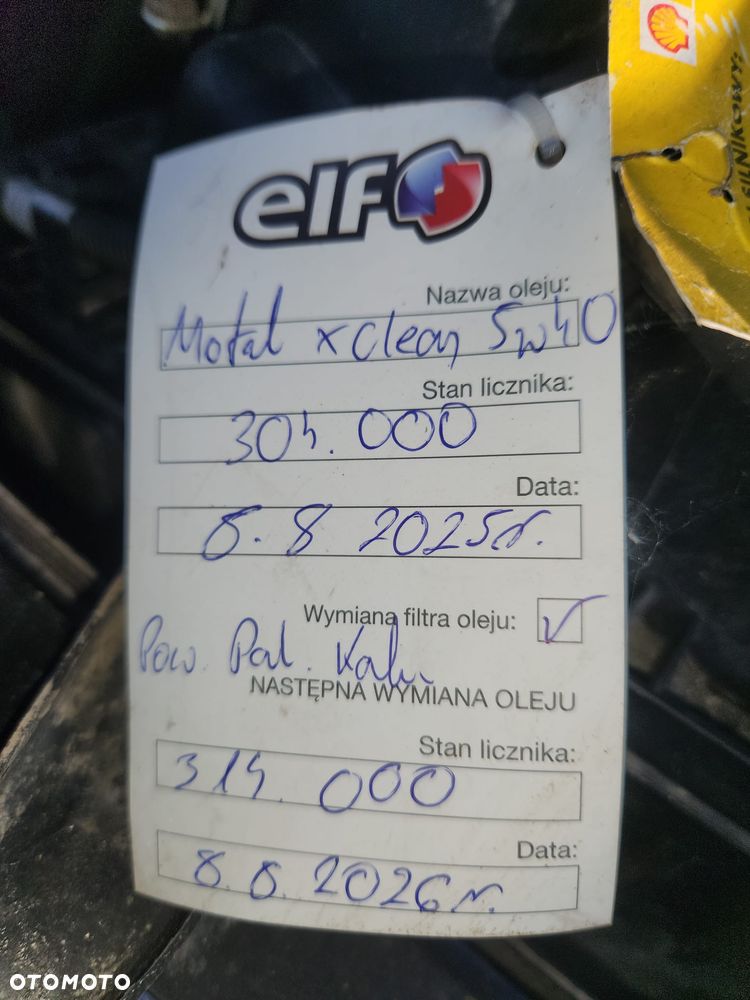 elf
SILNIKOWY:
Nazwa oleju:
Motal xclean 5w40
Stan licznika:
304.000
Data:
8.8 2025r.
Wymiana filtra oleju: ✓
Pow. Pal. Kabi
NASTĘPNA WYMIANA OLEJU
Stan licznika:
314.000
Data:
8.8.2026r.
OTOMOTO